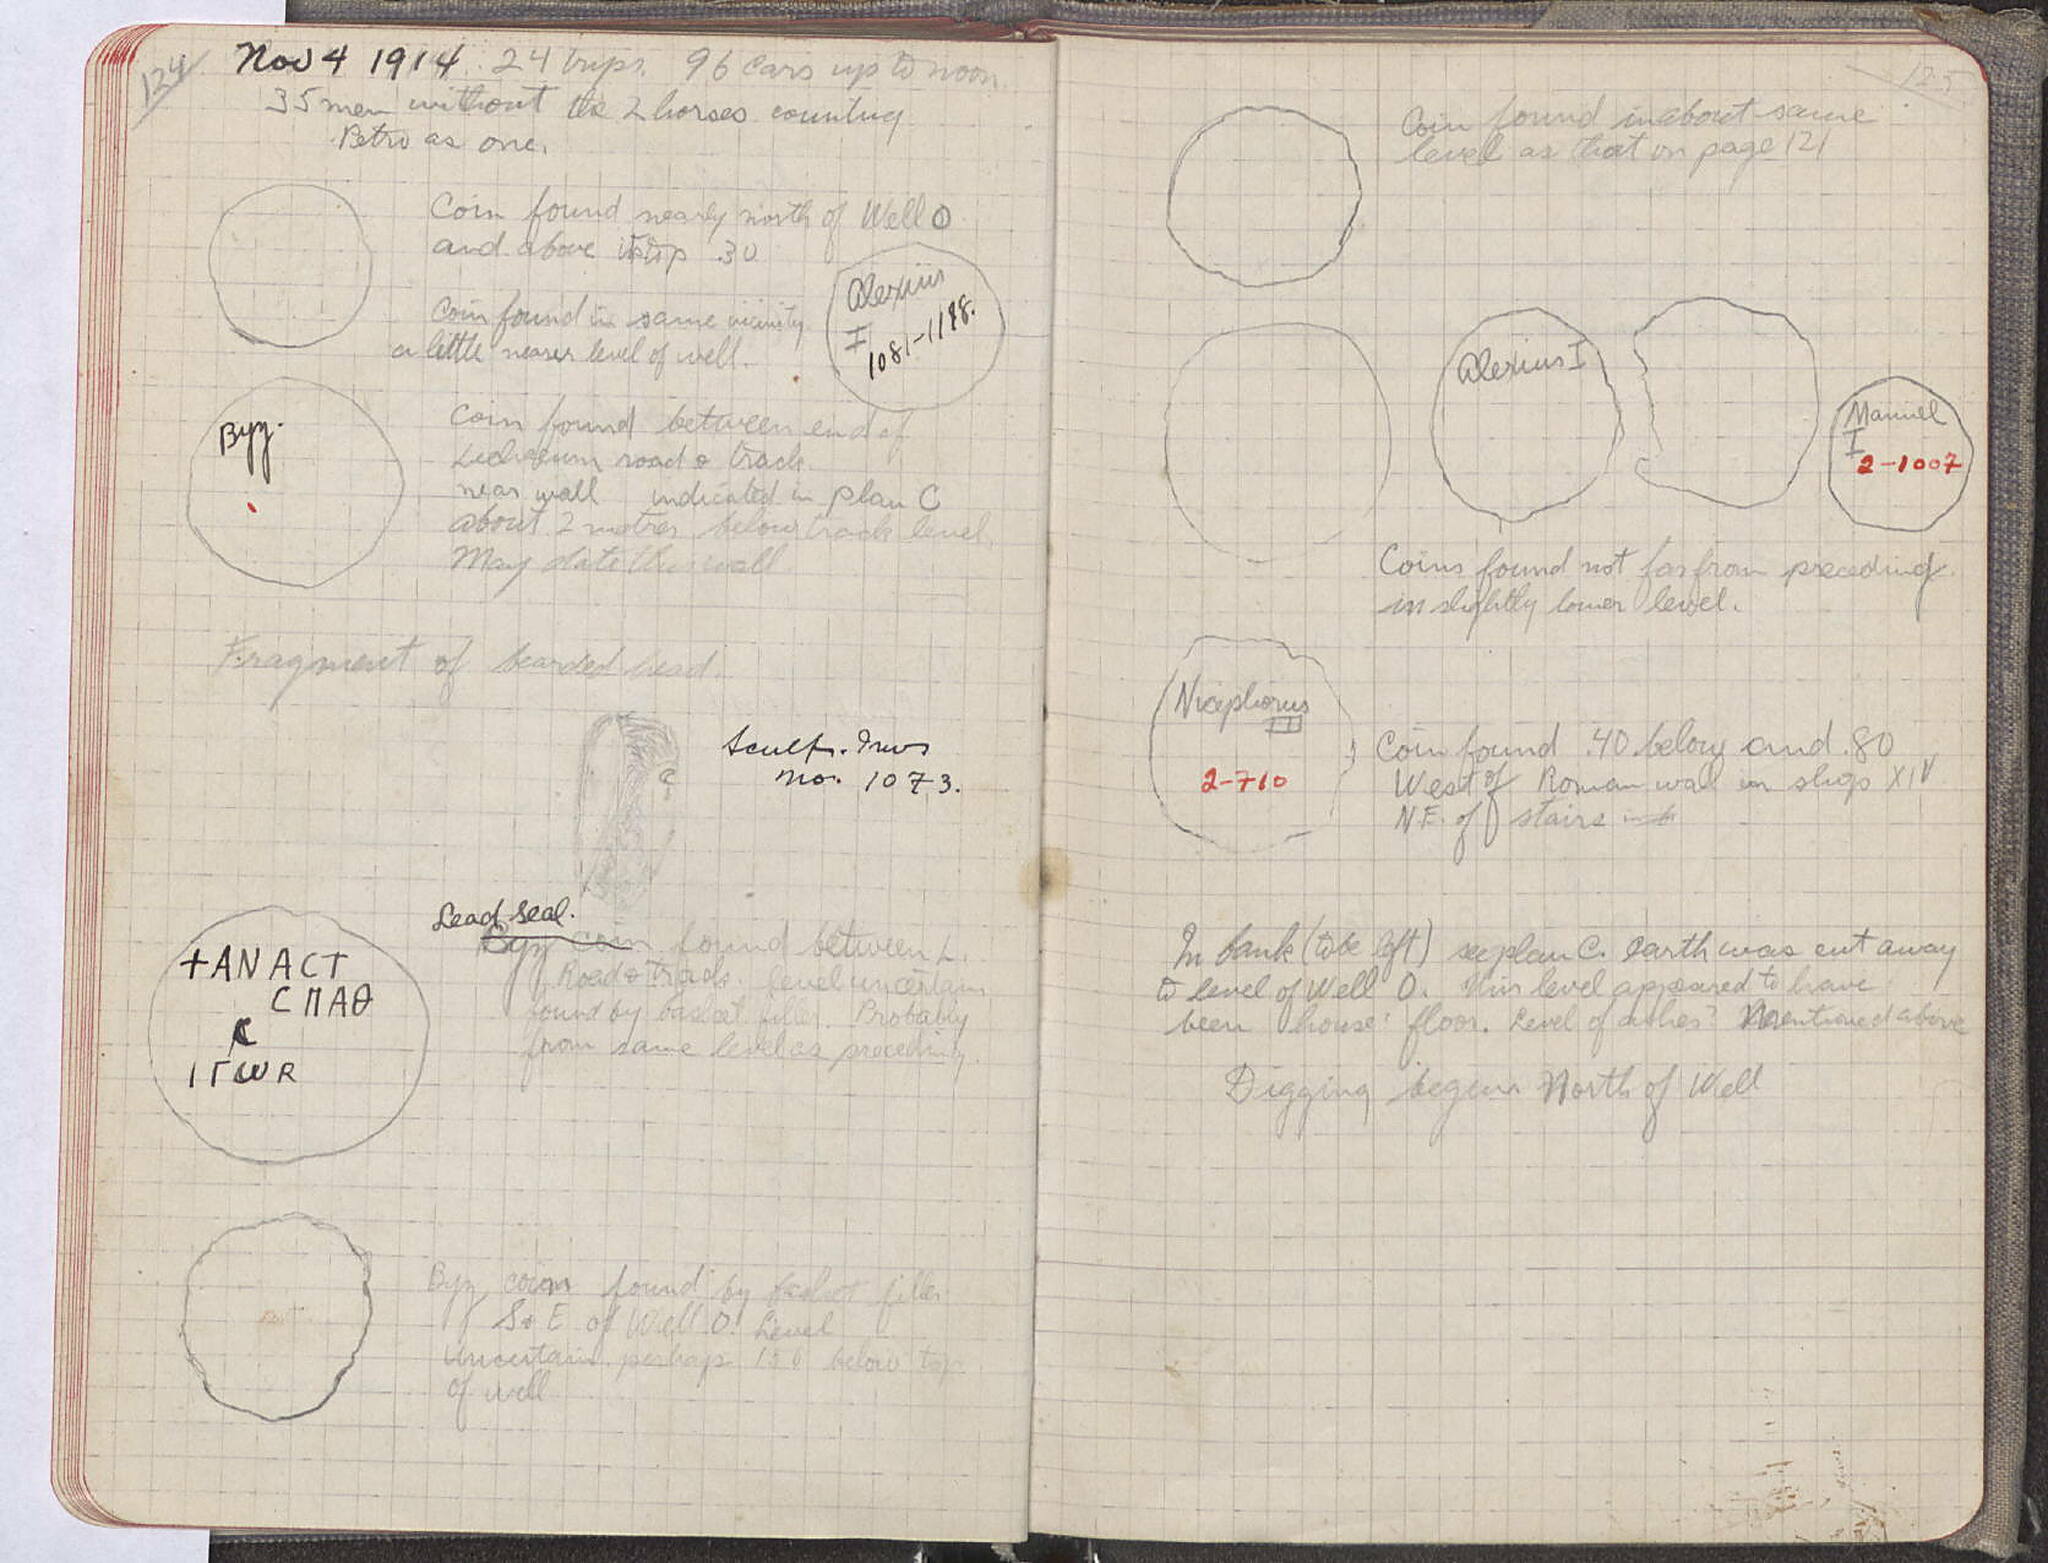 124
Nov 4 1914. 24 trips. 96 cars up to noon.
35 men without the 2 horses counting
Petro as one.
Coin found nearly north of Well O
and above its top .30
Alexius
I
1081-1198.
Coin found in same vicinity
a little nearer level of well.
Byz.
Coin found between end of
Lechaeum road & track
near wall indicated in plan C
about 2 metres below track level.
May date this wall
Fragment of bearded head.
Sculp. Inv.
no. 1073.
Lead seal.
+ANACT
CΠΑΘ
ΙΓωR
Byz coin found between L.
Road & track. level uncertain
found by basket filler. Probably
from same level as preceding.
Byz coin found by basket filler
S & E of Well O. Level
uncertain perhaps 1.50 below top
of well
125
Coin found in about same
level as that on page 121
Alexius I
Manuel
I
2-1007
Coins found not far from preceding
in slightly lower level.
Nicephorus
III
2-710
Coin found .40 below and .80
West of Roman wall in shop XIV
N.E. of stairs
In bank (to be left) see plan C. earth was cut away
to level of Well O. This level appeared to have
been house floor. Level of ashes? Mentioned above
Digging begins North of Well